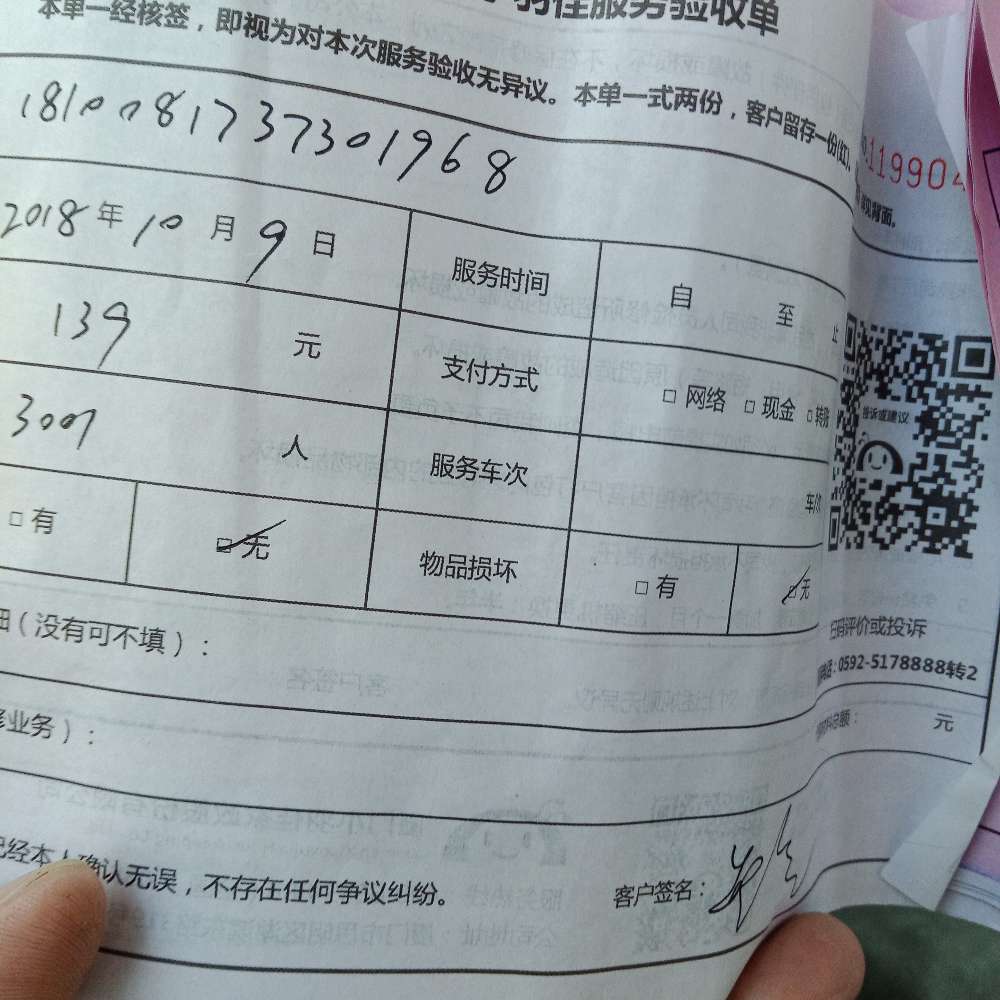 羽径服务验收单
本单一经核签，即视为对本次服务验收无异议。本单一式两份，客户留存一份(红)，
1810081737301968
119904
见背面。
2018年10月9日 服务时间 自 至 止
139 元 支付方式 □ 网络 □ 现金 □ 转账
人 服务车次 车/次
□ 有 □ 无 物品损坏 □ 有 □ 无
投诉或建议
扫码评价或投诉
0592-5178888转2
（没有可不填）：
总额： 元
业务）：
经本人确认无误，不存在任何争议纠纷。 客户签名：